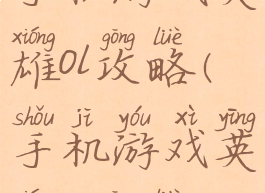 xióng gōng lüè
雄0l攻略(
shǒu jī yóu xì yīng
手机游戏英